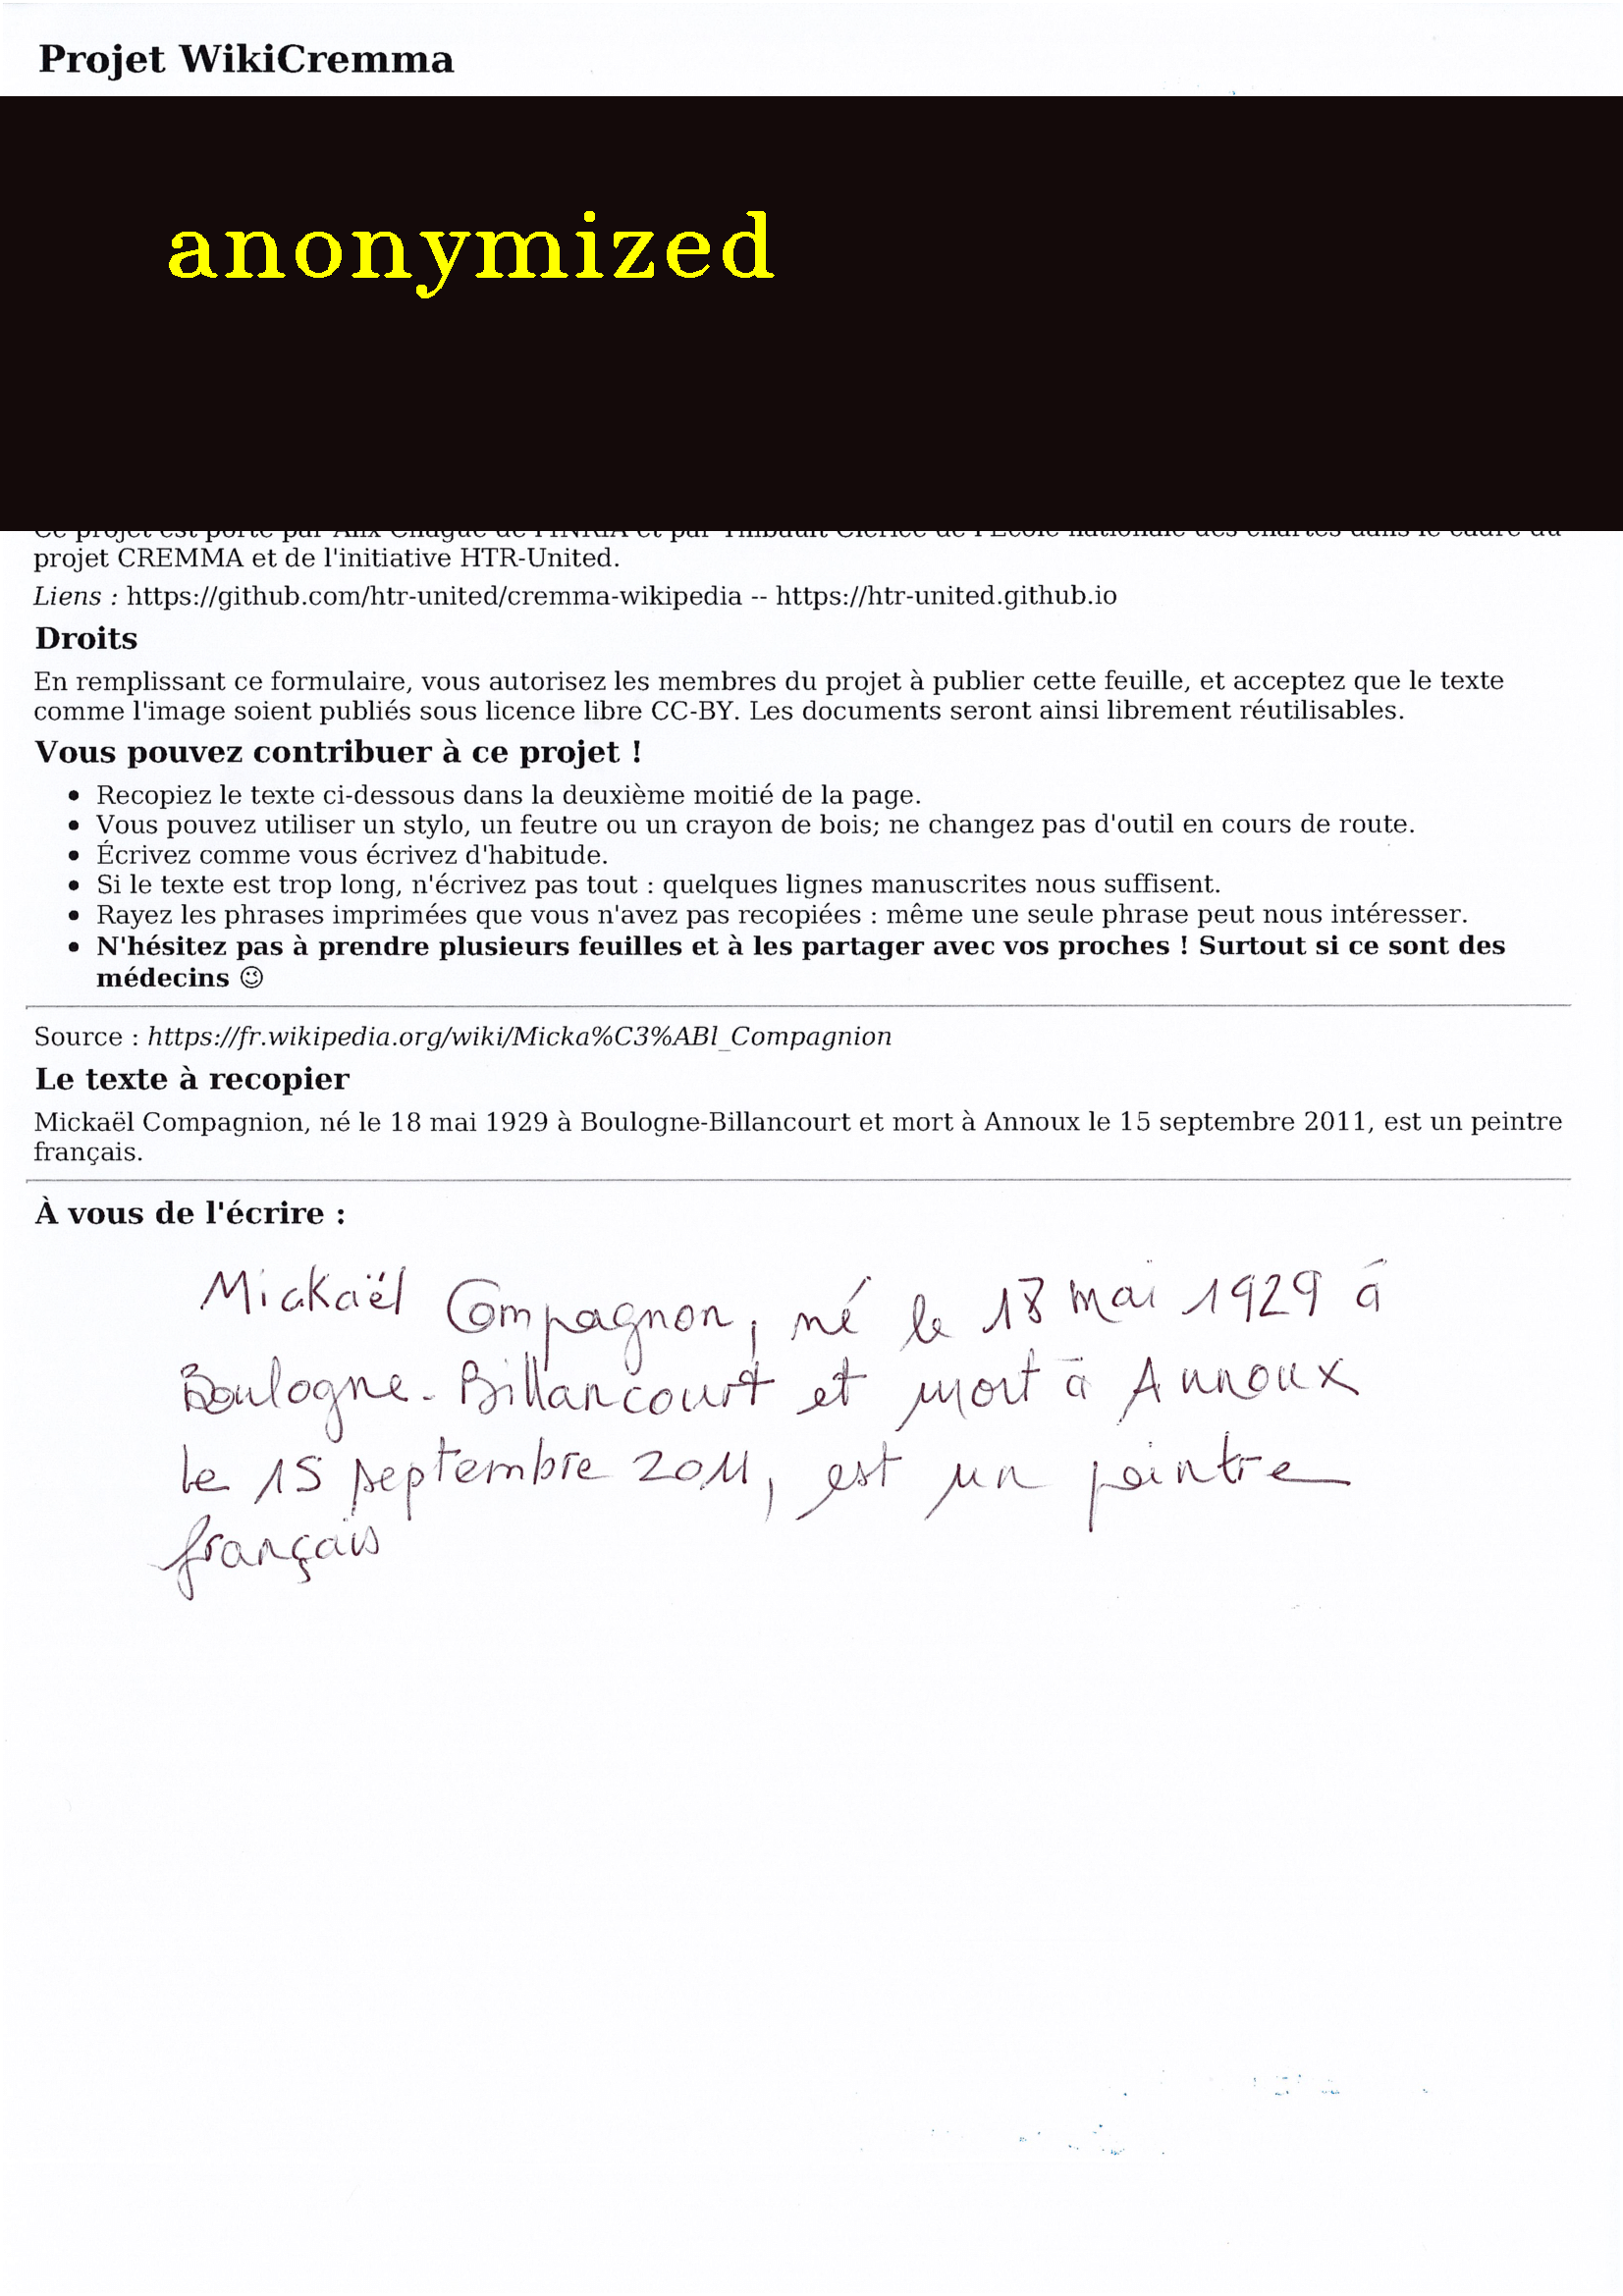 Projet WikiCremma
anonymized
Ce projet est porté par Alix Chagué de l'INRIA et par Thibault Clérice de l'École nationale des chartes dans le cadre du
projet CREMMA et de l'initiative HTR-United.
Liens : https://github.com/htr-united/cremma-wikipedia -- https://htr-united.github.io
Droits
En remplissant ce formulaire, vous autorisez les membres du projet à publier cette feuille, et acceptez que le texte
comme l'image soient publiés sous licence libre CC-BY. Les documents seront ainsi librement réutilisables.
Vous pouvez contribuer à ce projet !
• Recopiez le texte ci-dessous dans la deuxième moitié de la page.
• Vous pouvez utiliser un stylo, un feutre ou un crayon de bois; ne changez pas d'outil en cours de route.
• Écrivez comme vous écrivez d'habitude.
• Si le texte est trop long, n'écrivez pas tout : quelques lignes manuscrites nous suffisent.
• Rayez les phrases imprimées que vous n'avez pas recopiées : même une seule phrase peut nous intéresser.
• N'hésitez pas à prendre plusieurs feuilles et à les partager avec vos proches ! Surtout si ce sont des
médecins 😉
Source : https://fr.wikipedia.org/wiki/Micka%C3%ABl_Compagnion
Le texte à recopier
Mickaël Compagnion, né le 18 mai 1929 à Boulogne-Billancourt et mort à Annoux le 15 septembre 2011, est un peintre
français.
À vous de l'écrire :
Mickaël Compagnon, né le 18 mai 1929 à
Boulogne-Billancourt et mort à Annoux
le 15 septembre 2011, est un peintre
français